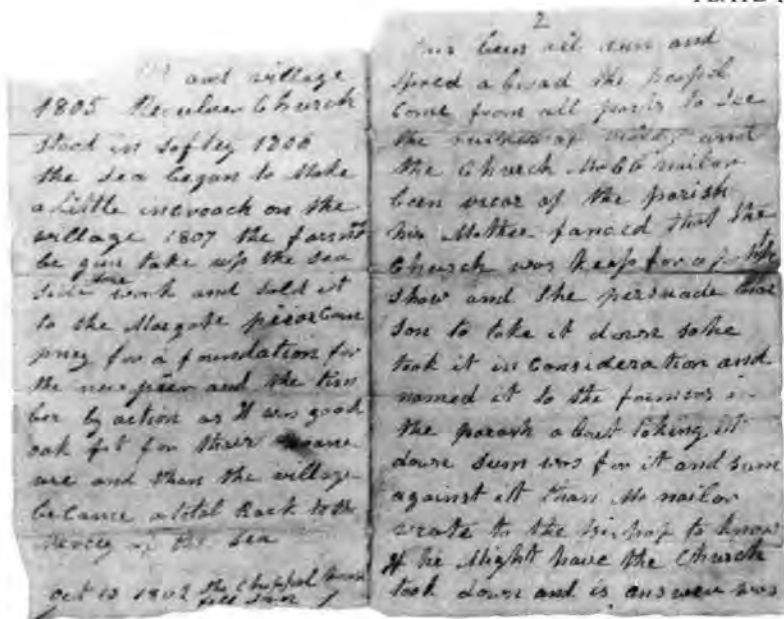 PLATE
and village
1805 Reculver Church
Stood in softey 1806
the sea began to Make
a Little incroach on the
village 1807 the farmrs
be gun take up the sea
side stone work and sold it
to the Margate pieor Com
pney for a foundation for
the new pier and the tim
ber by action as it was good
oak fit for their
use and than the village
became a total Rack to the
Mercey of the sea
Oct 13 1802 the Chappel house
fell down
2
been all run and
spred a broad the peapel
come from all parts to see
the of and
the Church Mr C C nailor
been vicar of the parish
his Mother fanced that the
Church was keap for a
show and she persuade har
son to take it down so he
took it in Consideration and
named it to the farmers in
the parash about taking it
down sum wos for it and sum
against it than Mr nailor
wrate to the bishop to know
if he Might have the Church
took down and is answer was